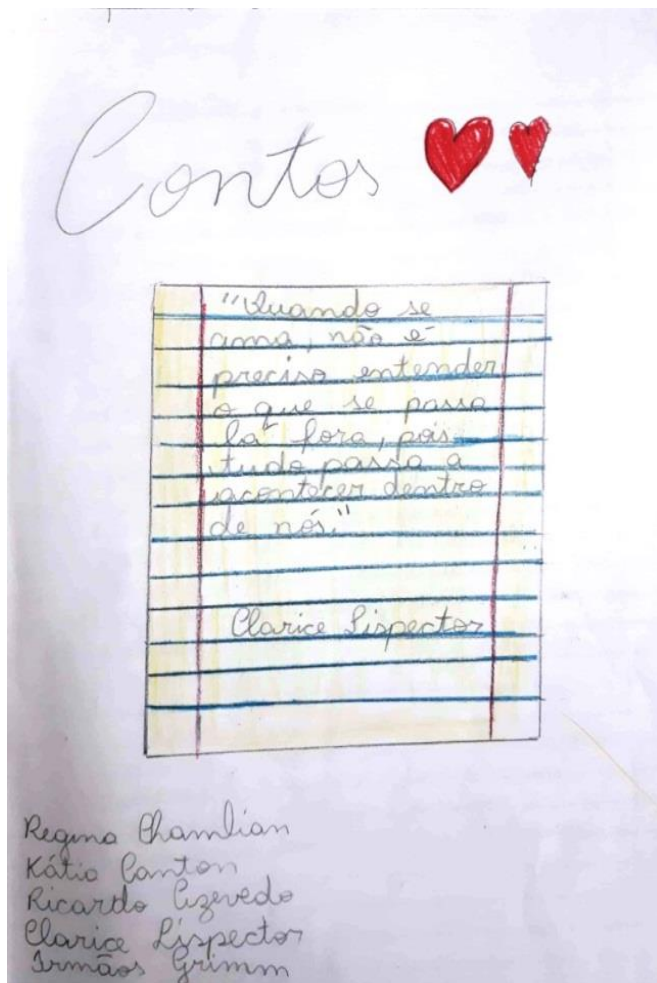 Contos
"Quando se
ama, não é
preciso entender
o que se passa
lá fora, pois
tudo passa a
acontecer dentro
de nós."
Clarice Lispector
Regina Chamlian
Kátia Canton
Ricardo Azevedo
Clarice Lispector
Irmãos Grimm